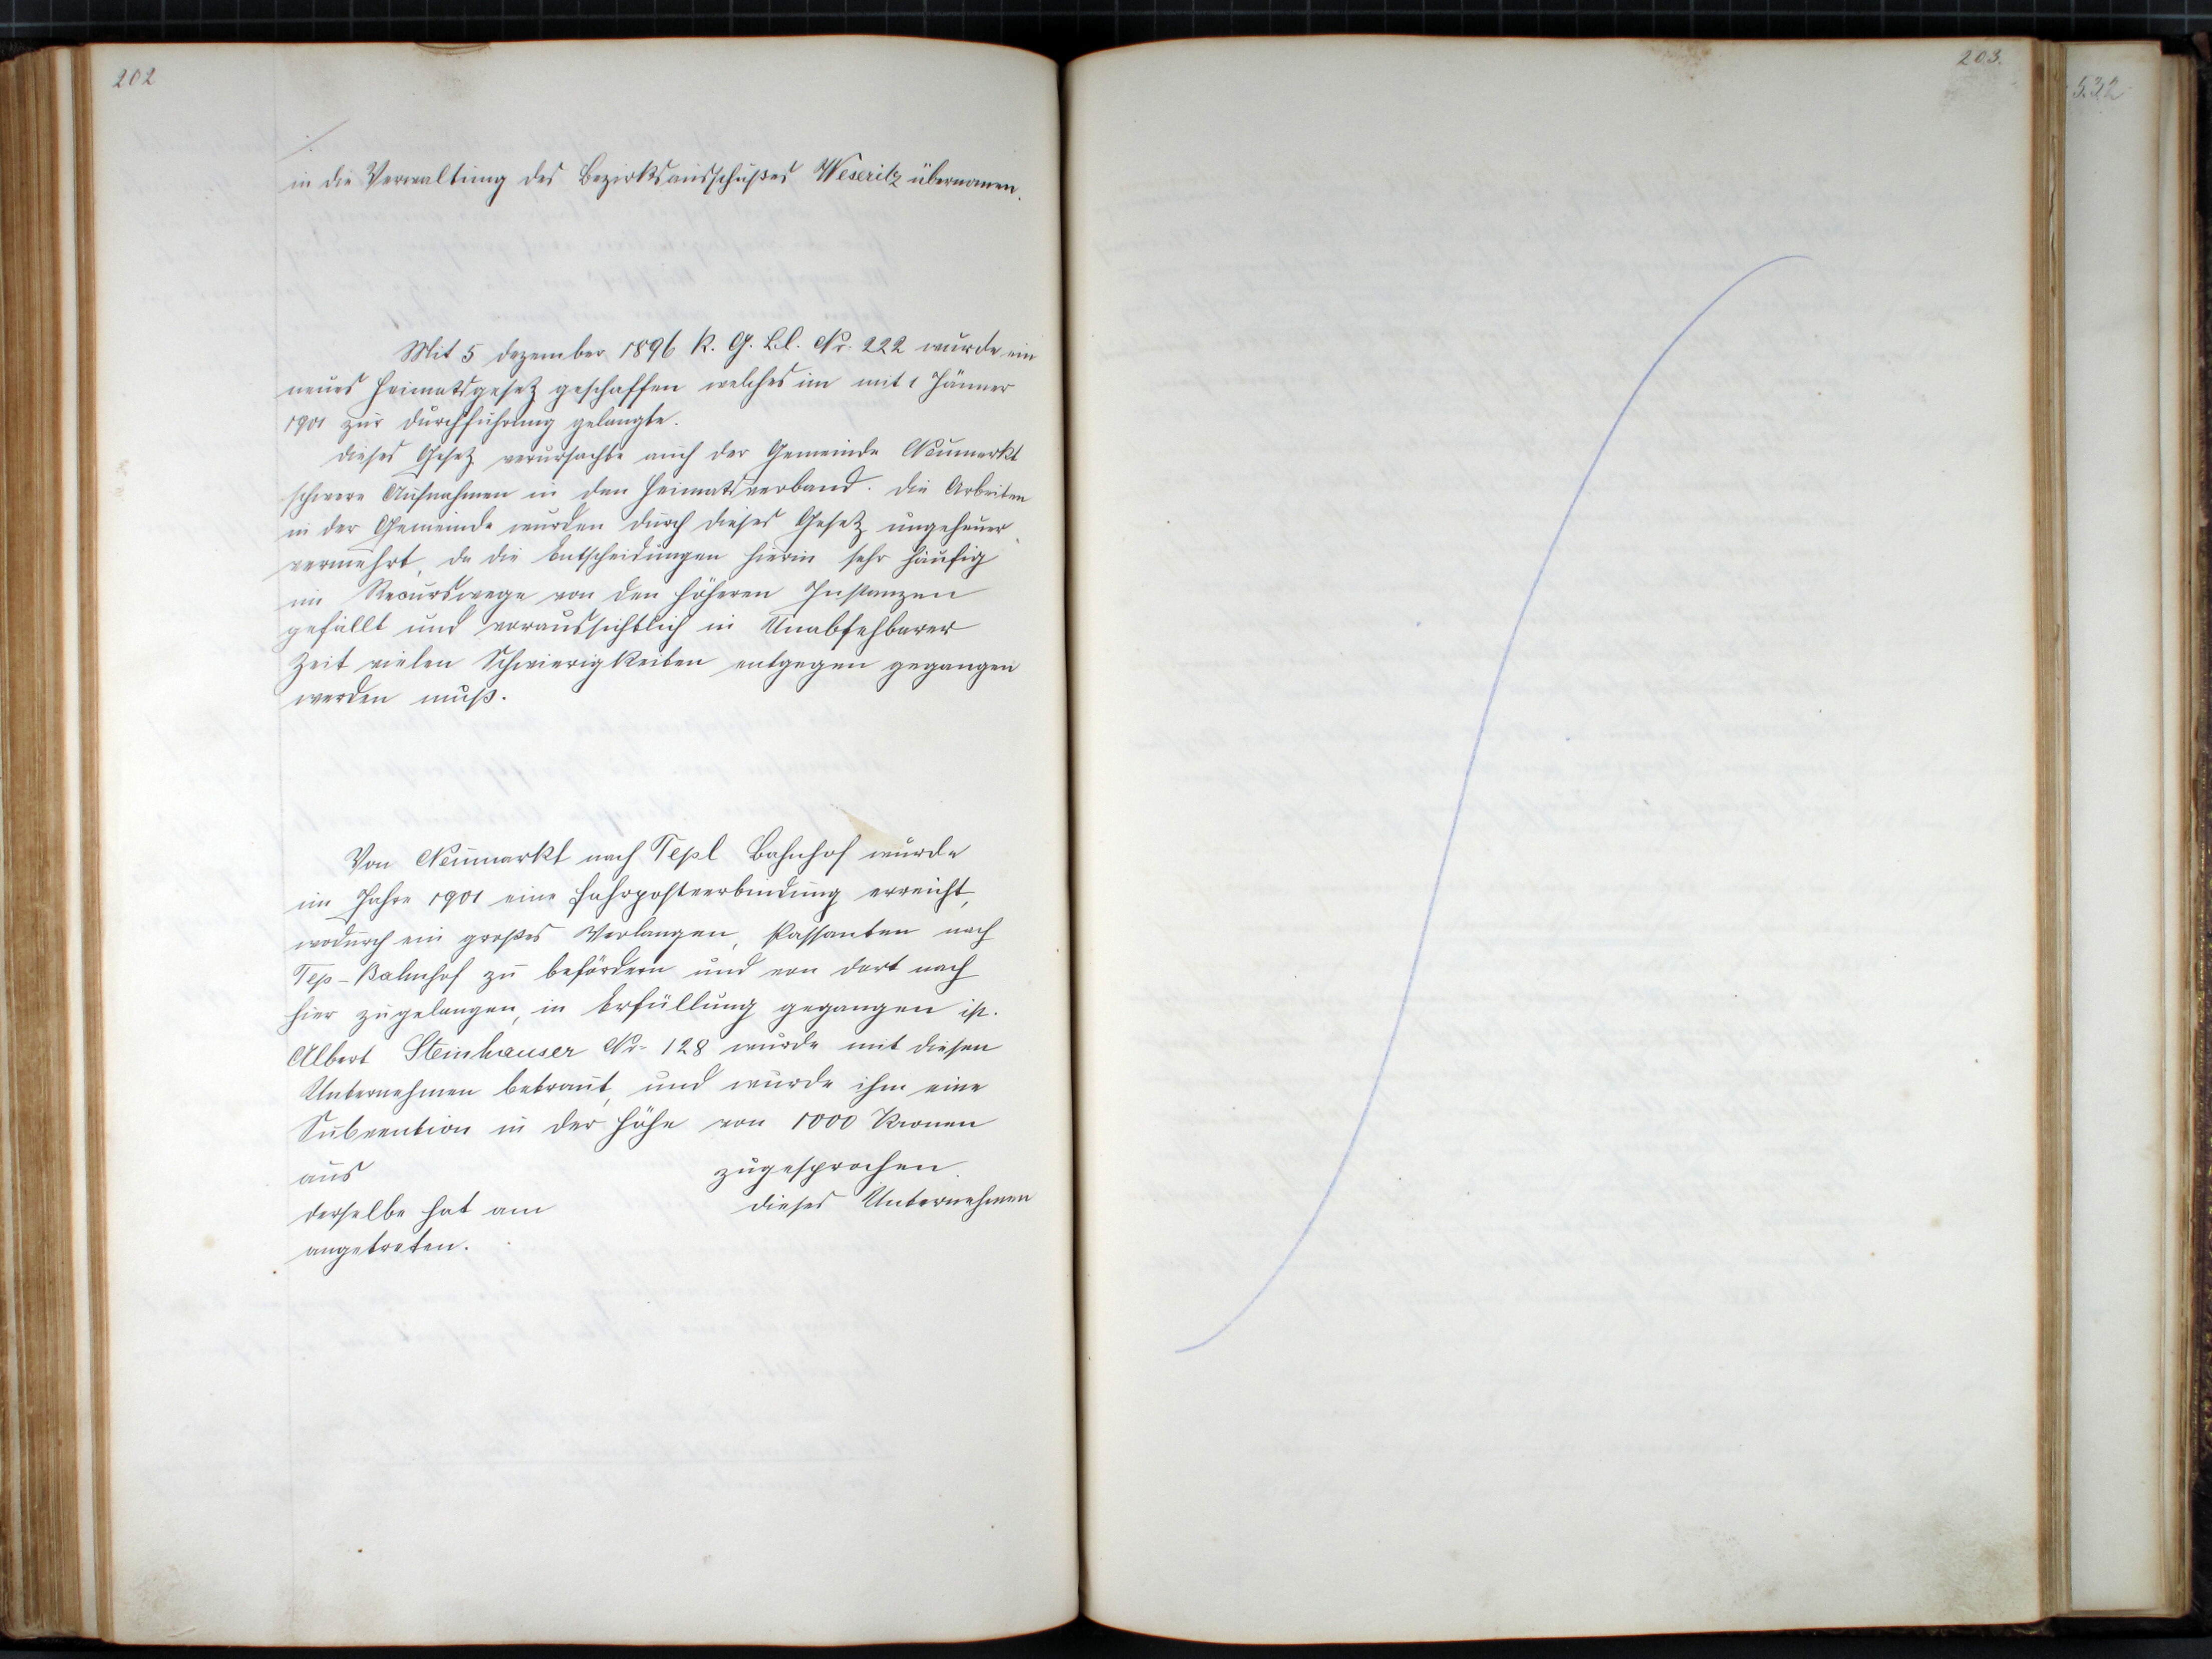 202
./.
in die Verwaltung des Bezirksausschußes Weseritz übernomen.
Mit 5 Dezember 1896 R. G. Bl. Nr. 222 wurde ein
neues Heimatsgesetz geschaffen welches im mit 1 Jänner
1901 zur Durchführung gelangte.
Dieses Gesetz verursachte auch der Gemeinde Neumarkt
schwere Aufnahmen in den Heimatsverband. Die Arbeiten
in der Gemeinde wurden durch dieses Gesetz ungeheuer
vermehrt, da die Entscheidungen hierin sehr häufig
im Recurswege von den höheren Instanzen
gefällt und voraussichtlich in Unabsehbarer
Zeit vielen Schwierigkeiten entgegen gegangen
werden muß.
Von Neumarkt nach Tepl Bahnhof wurde
im Jahre 1901 eine Fahrpostverbindung erreicht,
wodurch ein großes Verlangen, Passanten nach
Tep-Bahnhof zu befördern und von dort nach
hier zugelangen, in Erfüllung gegangen ist.
Albert Steinhauser Nr. 128 wurde mit diesen
Unternehmen betraut, und wurde ihm eine
Subvention in der Höhe von 1000 Kronen
aus zugesprochen.
Derselbe hat am dieses Unternehmen
angetreten.
203.
532